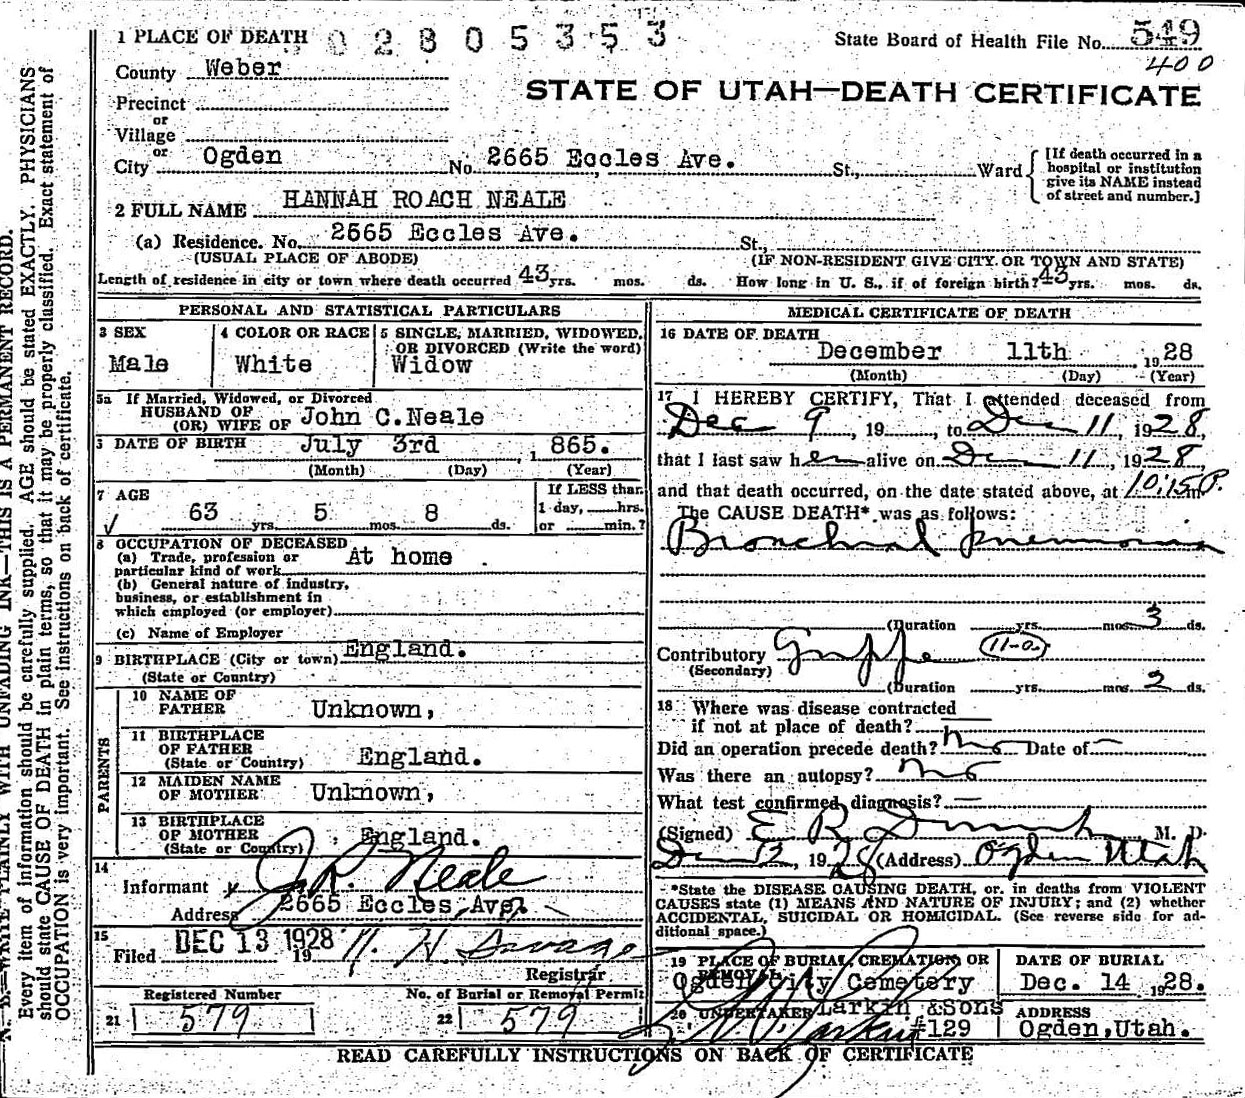 1 PLACE OF DEATH
0 2 8 0 5 3 5 3
State Board of Health File No. 549
400
County Weber
STATE OF UTAH—DEATH CERTIFICATE
Precinct
or
Village
or
City Ogden No. 2665 Eccles Ave. St., Ward
[If death occurred in a
hospital or institution
give its NAME instead
of street and number.]
2 FULL NAME HANNAH ROACH NEALE
(a) Residence. No. 2665 Eccles Ave. St.,
(USUAL PLACE OF ABODE) (IF NON-RESIDENT GIVE CITY OR TOWN AND STATE)
Length of residence in city or town where death occurred 43 yrs. mos. ds. How long in U. S., if of foreign birth? 43 yrs. mos. ds.
PERSONAL AND STATISTICAL PARTICULARS
3 SEX
Male
4 COLOR OR RACE
White
5 SINGLE, MARRIED, WIDOWED,
OR DIVORCED (Write the word)
Widow
5a If Married, Widowed, or Divorced
HUSBAND OF
(OR) WIFE OF John C.Neale
DATE OF BIRTH July 3rd , 1865.
(Month) (Day) (Year)
7 AGE
63 yrs. 5 mos. 8 ds.
If LESS than
1 day, hrs.
or min.?
8 OCCUPATION OF DECEASED
(a) Trade, profession or
particular kind of work At home
(b) General nature of industry,
business, or establishment in
which employed (or employer)
(c) Name of Employer
9 BIRTHPLACE (City or town) England.
(State or Country)
PARENTS
10 NAME OF
FATHER Unknown,
11 BIRTHPLACE
OF FATHER
(State or Country) England.
12 MAIDEN NAME
OF MOTHER Unknown,
13 BIRTHPLACE
OF MOTHER
(State or Country) England.
14
Informant J. R. Neale
Address 2665 Eccles Ave.
15
Filed DEC 13 1928 19 H. H. Savage
Registrar
Registered Number
21 579
No. of Burial or Removal Permit
22 579
MEDICAL CERTIFICATE OF DEATH
16 DATE OF DEATH
December 11th 1928
(Month) (Day) (Year)
17 I HEREBY CERTIFY, That I attended deceased from
Dec 9, 19 , to Dec 11, 1928,
that I last saw her alive on Dec 11, 1928
and that death occurred, on the date stated above, at 10:15 P.m
The CAUSE DEATH* was as follows:
Bronchial pneumonia
(Duration yrs. mos. 3 ds.
Contributory Grippe 11-0
(Secondary)
(Duration yrs. mos. 2 ds.
18 Where was disease contracted
if not at place of death?
Did an operation precede death? no Date of —
Was there an autopsy? no
What test confirmed diagnosis? —
(Signed) E R M. D.
Dec 12, 1928 (Address) Ogden Utah
*State the DISEASE CAUSING DEATH, or, in deaths from VIOLENT
CAUSES state (1) MEANS AND NATURE OF INJURY; and (2) whether
ACCIDENTAL, SUICIDAL OR HOMICIDAL. (See reverse side for ad-
ditional space.)
19 PLACE OF BURIAL, CREMATION OR
REMOVAL
Ogden City Cemetery
DATE OF BURIAL
Dec. 14 1928.
20 UNDERTAKER Larkin &Sons
#129
ADDRESS
Ogden,Utah.
READ CAREFULLY INSTRUCTIONS ON BACK OF CERTIFICATE
N. B.—WRITE PLAINLY WITH UNFADING INK—THIS IS A PERMANENT RECORD.
Every item of information should be carefully supplied. AGE should be stated EXACTLY. PHYSICIANS
should state CAUSE OF DEATH in plain terms, so that it may be properly classified. Exact statement of
OCCUPATION is very important. See instructions on back of certificate.